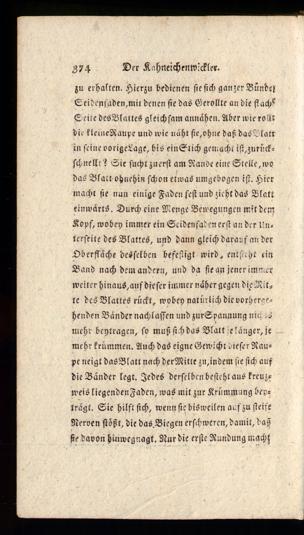 374 Der Kahneichenwickler.
zu erhalten. Hierzu bedienen sie sich ganzer Bündel
Seidenfaden, mit denen sie das Gerollte an die flache
Seite des Blattes gleichsam annähen. Aber wie rollt
die kleine Raupe und wie näht sie, ohne daß das Blatt
in seine vorige Lage, bis ein Stich gemacht ist, zurück-
schnellt? Sie sucht zuerst am Rande eine Stelle, wo
das Blatt ohnehin schon etwas umgebogen ist. Hier
macht sie nun einige Faden fest und zieht das Blatt
einwärts. Durch eine Menge Bewegungen mit dem
Kopf, wobey immer ein Seidenfaden erst an der Un-
terseite des Blattes, und dann gleich darauf an der
Oberfläche desselben befestigt wird, entsteht ein
Band nach dem andern, und da sie an jener immer
weiter hinaus, auf dieser immer näher gegen die Mit-
te des Blattes rückt, wobey natürlich die vorherge-
henden Bänder nachlassen und zur Spannung nichts
mehr beytragen, so muß sich das Blatt je länger, je
mehr krümmen. Auch das eigne Gewicht dieser Rau-
pe neigt das Blatt nach der Mitte zu, indem sie sich auf
die Bänder legt. Jedes derselben besteht aus kreuz-
weis liegenden Faden, was mit zur Krümmung bey-
trägt. Sie hilft sich, wenn sie bisweilen auf zu steife
Nerven stößt, die das Biegen erschweren, damit, daß
sie davon hinwegnagt. Nur die erste Rundung macht